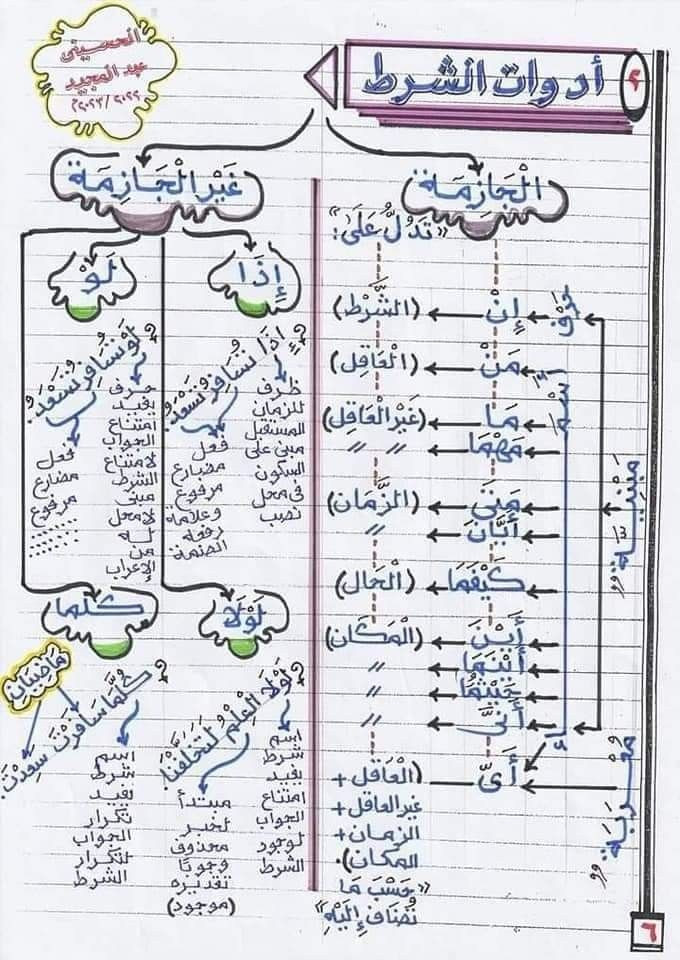 ٢
أدوات الشرط
الحسيني
عبد المجيد
٢٠٢٢/٢٠٢٣م
الْجَازِمَة
غَيْر الْجَازِمَة
«تَدُلُّ عَلَى»:
حَرْف
إِنْ
(الشَّرْط)
اسْم
مَنْ
(الْعَاقِل)
مَا
(غَيْر الْعَاقِل)
مَهْمَا
〃 〃
مَتَى
(الزَّمَان)
أَيَّانَ
〃
كَيْفَمَا
(الْحَال)
أَيْنَ
(الْمَكَان)
أَيْنَمَا
〃
حَيْثُمَا
〃
أَنَّى
〃
أَيّ
(الْعَاقِل +
غير العاقل +
الزمان +
المكان).
«حَسْبَ مَا
تُضَاف إِلَيْهِ»
مَبْنِيَّة
مُعْرَبَة
إِذَا
إِذَا تُسَافِرُ تَسْعَدُ.
ظرف
للزمان
المستقبل
مبني على
السكون
في محل
نصب
فعل
مضارع
مرفوع
وعلامة
رفعه
الضمة
لَوْ
لَوْ تُسَافِرُ تَسْعَدُ.
حرف
يفيد
امتناع
الجواب
لامتناع
الشرط
مبنى
لا محل
له
من
الإعراب
فعل
مضارع
مرفوع
لَوْلَا
لَوْلَا الْعِلْمُ لَتَخَلَّفْنَا.
اسم
شرط
يفيد
امتناع
الجواب
لوجود
الشرط
مبتدأ
لخبر
محذوف
وجوبًا
تقديره
(موجود)
كلما
ماضيان
كُلَّمَا سَافَرْتَ سَعِدْتَ.
اسم
شرط
يفيد
تكرار
الجواب
لتكرار
الشرط
٦